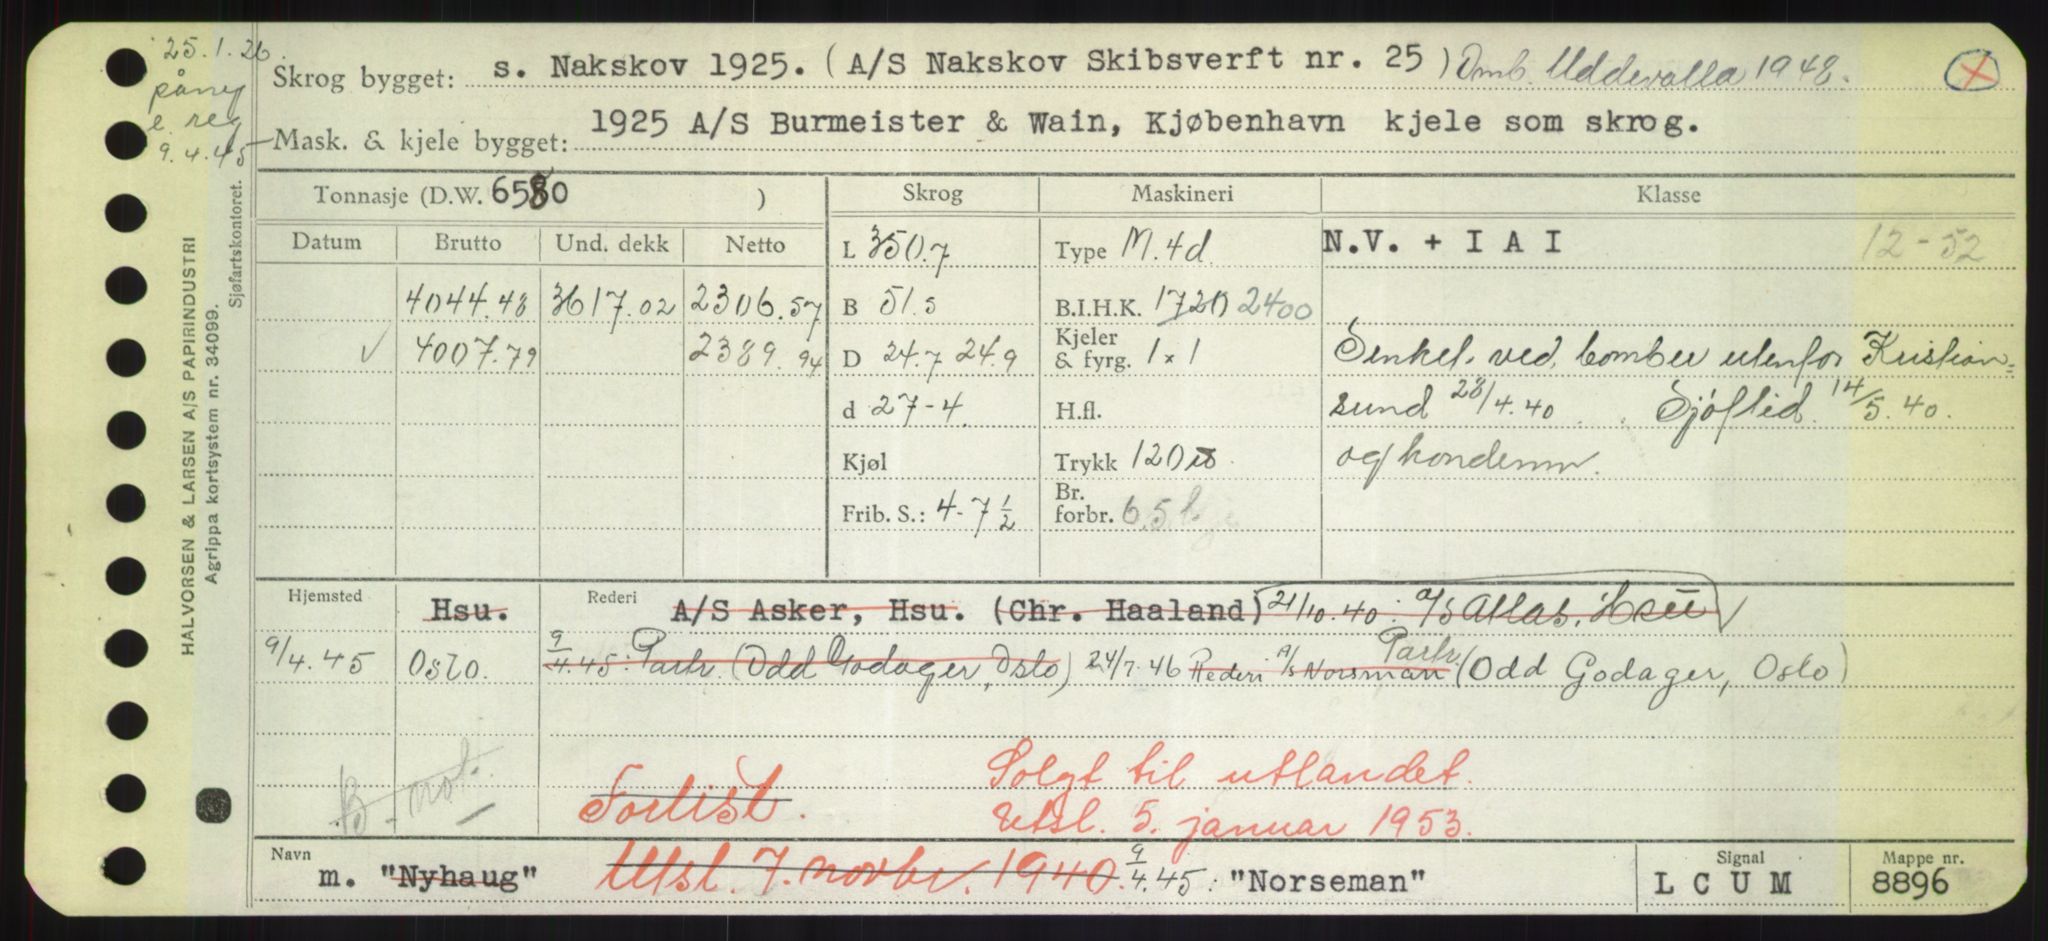 25.1.26.
på ny
e. reg
9.4.45
Skrog bygget: s. Nakskov 1925. (A/S Nakskov Skibsverft nr. 25) Omb. Uddevalla 1948.
Mask. & kjele bygget: 1925 A/S Burmeister & Wain, Kjøbenhavn kjele som skrog.
HALVORSEN & LARSEN A/S PAPIRINDUSTRI
Agrippa kortsystem nr. 34099.
Sjøfartskontoret.
Tonnasje (D.W. 6580 ) Skrog Maskineri Klasse
Datum Brutto Und. dekk Netto L 350.7 Type M. 4d. N.V. + I A I 12-52
4044.48 3617.02 2306.57 B 51.5 B.I.H.K. 1720 2400
✓ 4007.79 2389.94 D 24.7 24.9 Kjeler & fyrg. 1x1 Senket ved bomber utenfor Kristian=
d 27-4 H.fl. sund 28/4.40. Sjøftid. 14/5.40.
Kjøl Trykk 120 og kondemn.
Frib. S.: 4-7 1/2 Br. forbr. 6.5
Hjemsted Hsu. Rederi A/S Asker, Hsu. (Chr. Haaland) 21/10.40: A/S Atlas, Hsu
9/4.45 Oslo. 9/4.45: Partr. (Odd Godager, Oslo) 24/7.46 Rederi A/S Norsman Partr. (Odd Godager, Oslo)
B. not.
Forlist.
Solgt til utlandet.
Utsl. 5. januar 1953.
Navn m. "Nyhaug" Utsl. 7. novbr. 1940. 9/4.45: "Norseman" Signal L C U M Mappe nr. 8896